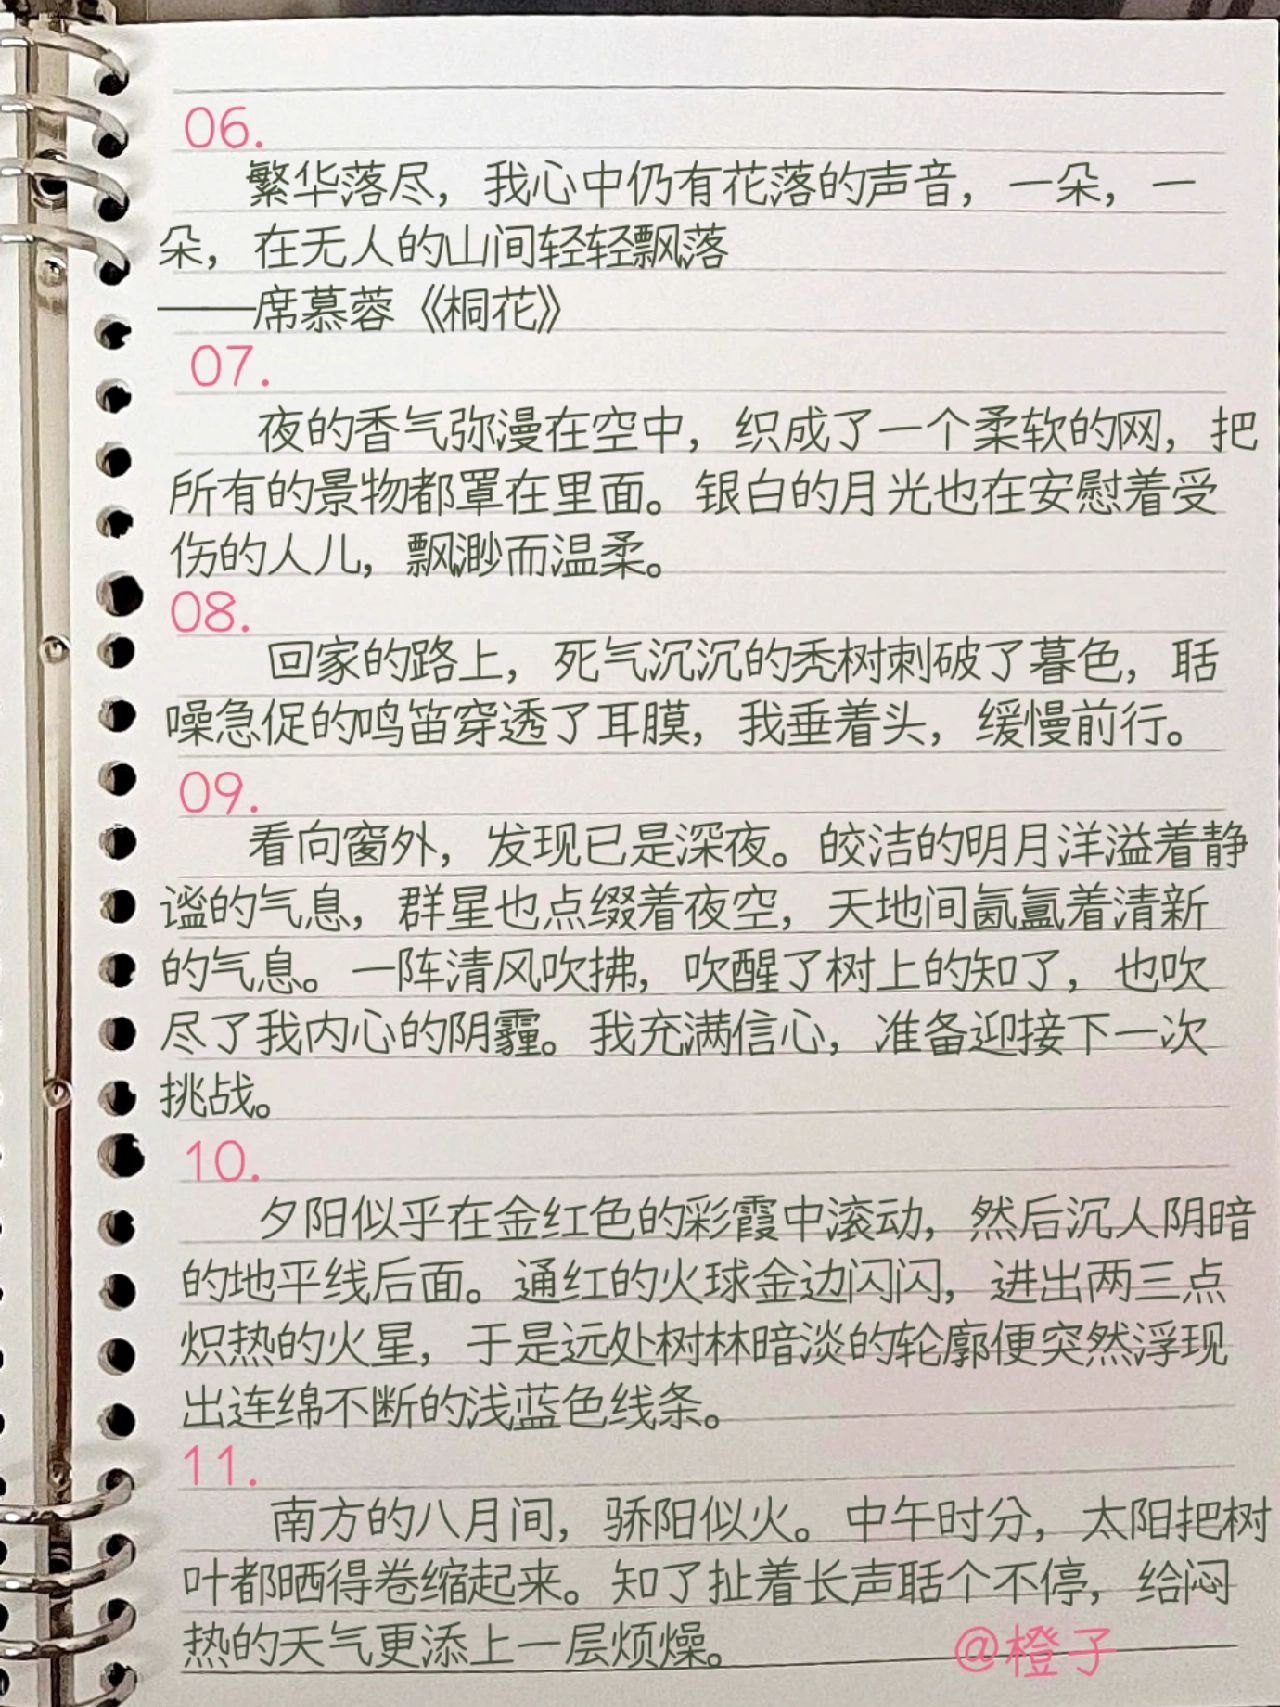 06.
繁华落尽，我心中仍有花落的声音，一朵，一
朵，在无人的山间轻轻飘落
——席慕蓉《桐花》
07.
夜的香气弥漫在空中，织成了一个柔软的网，把
所有的景物都罩在里面。银白的月光也在安慰着受
伤的人儿，飘渺而温柔。
08.
回家的路上，死气沉沉的秃树刺破了暮色，聒
噪急促的鸣笛穿透了耳膜，我垂着头，缓慢前行。
09.
看向窗外，发现已是深夜。皎洁的明月洋溢着静
谧的气息，群星也点缀着夜空，天地间氤氲着清新
的气息。一阵清风吹拂，吹醒了树上的知了，也吹
尽了我内心的阴霾。我充满信心，准备迎接下一次
挑战。
10.
夕阳似乎在金红色的彩霞中滚动，然后沉人阴暗
的地平线后面。通红的火球金边闪闪，进出两三点
炽热的火星，于是远处树林暗淡的轮廓便突然浮现
出连绵不断的浅蓝色线条。
11.
南方的八月间，骄阳似火。中午时分，太阳把树
叶都晒得卷缩起来。知了扯着长声聒个不停，给闷
热的天气更添上一层烦燥。
@橙子